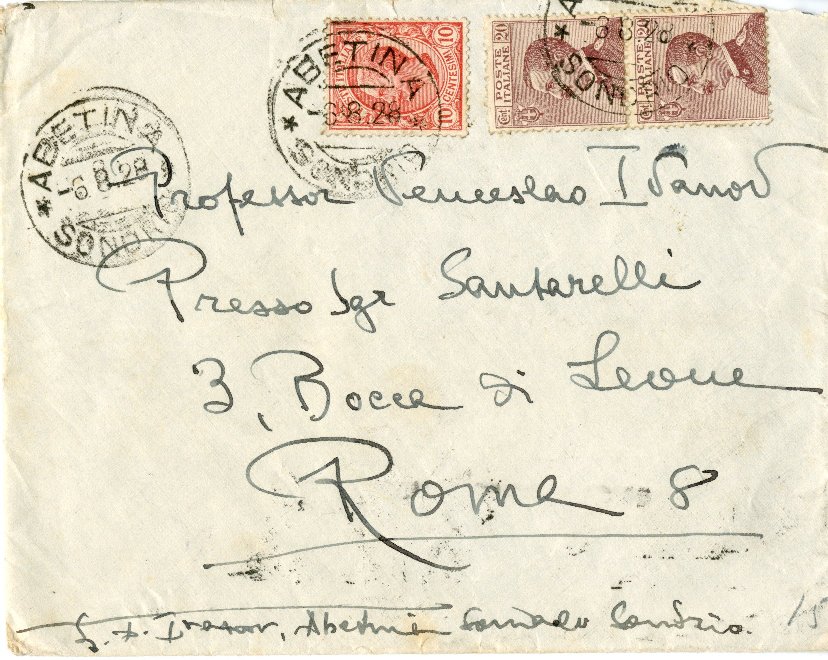 ABETINA
-6.8.28
SONDRIO
ABETINA
-6.8.28
SONDRIO
10 CENTESIMI 10
POSTE ITALIANE
Cent. 20
POSTE ITALIANE
Cent. 20
-6.8.28
SONDRIO
Professor Venceslao Ivanov
Presso Sgr Santarelli
3, Bocca di Leone
Roma 8
Abetina Sondalo Sondrio.
15